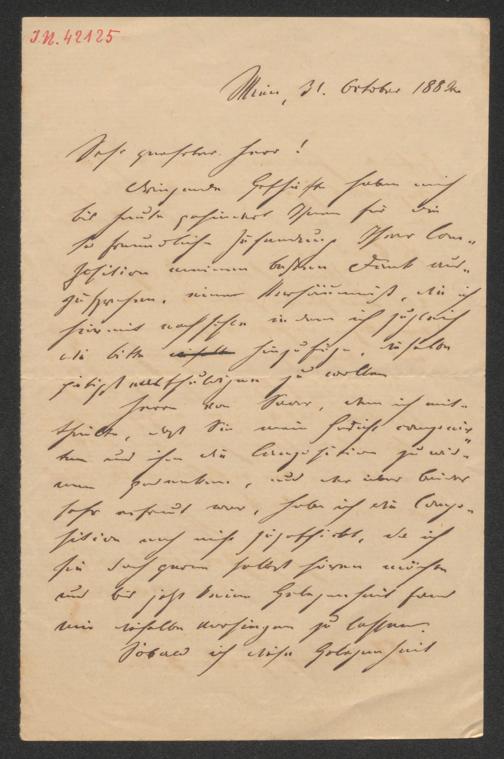 I.N. 42125
Wien, 31. October 188
Sehr geehrter Herr!
Dringende Geschäfte haben mich
bis heute gehindert Ihnen für die
so freundliche Zusendung Ihrer Com-
position meinen besten Dank aus-
zusprechen, eine Versäumniß, die ich
hiermit nachhole indem ich zugleich
die Bitte hinzufüge, dieselbe
gütigst entschuldigen zu wollen.
Herrn von, dem ich mit-
theilte, daß Sie mein Gedicht componir-
ten und ihm die Composition zu wid-
men gedenken, und der über beides
sehr erfreut war, habe ich die Compo-
sition noch nicht zugeschickt, da ich
sie doch gerne selbst hören möchte
und bis jetzt keine Gelegenheit fand
mir dieselbe vorsingen zu lassen.
Sobald ich diese Gelegenheit